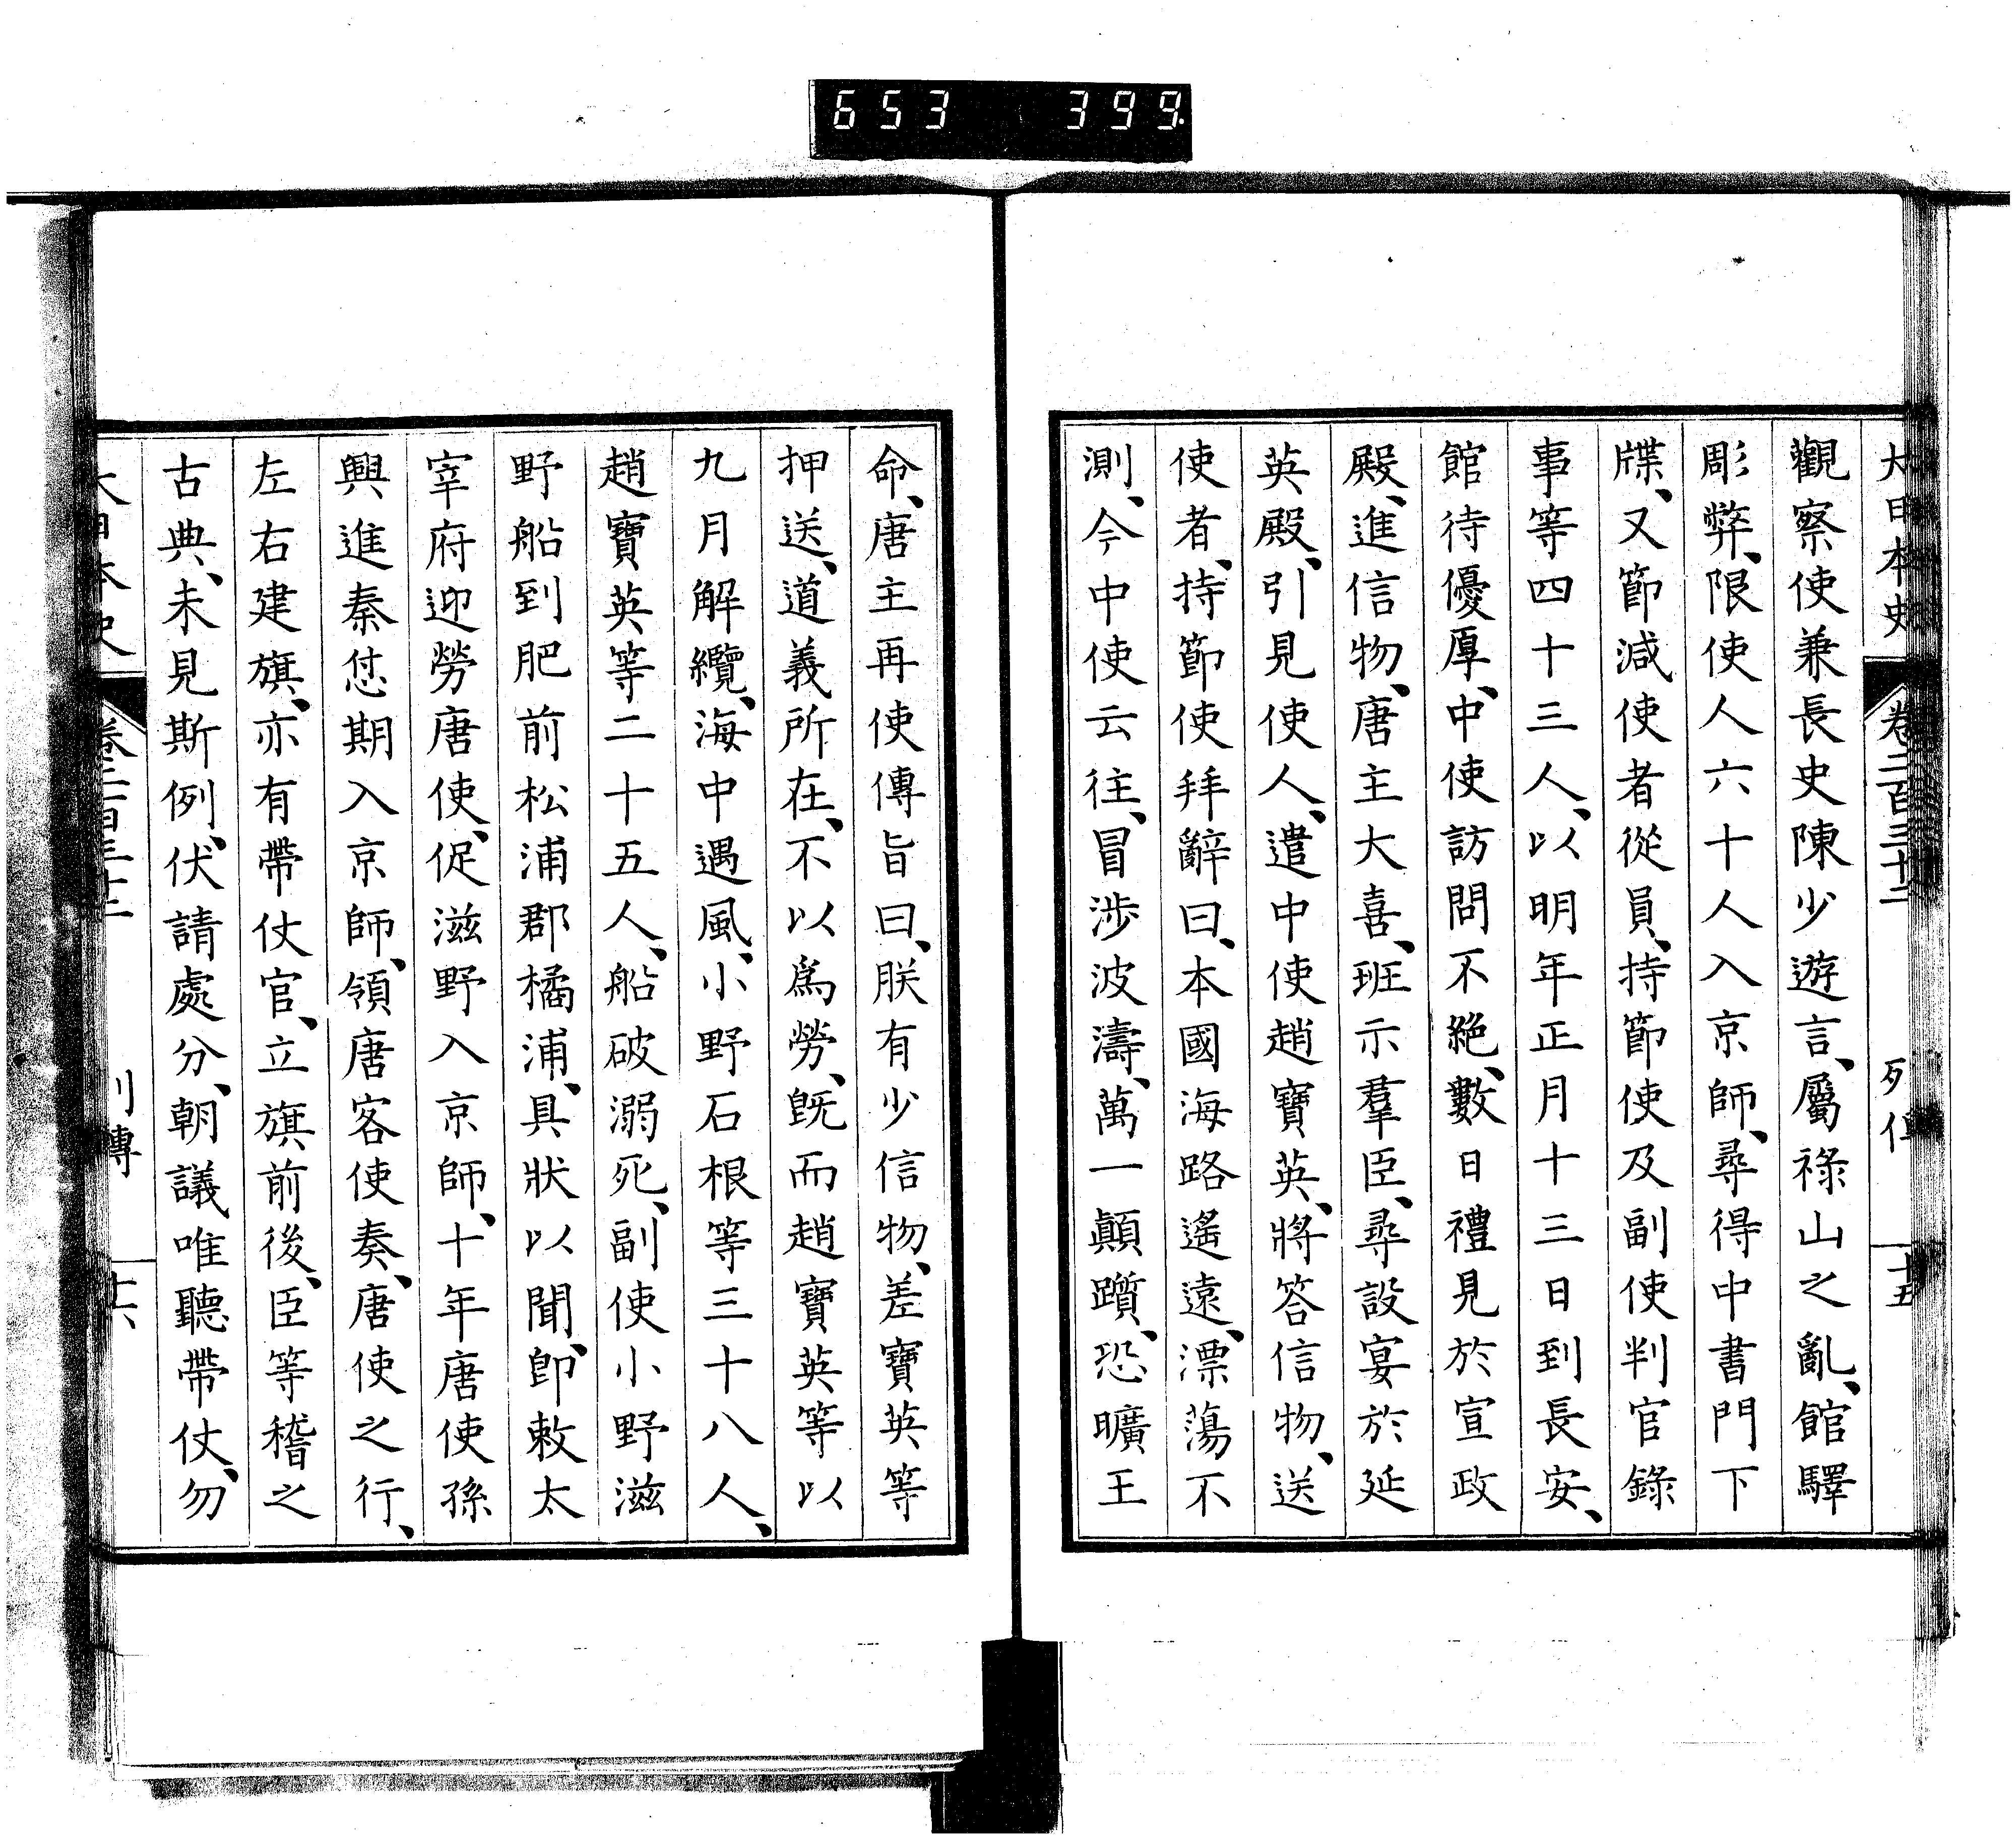 653 399
大日本史 卷二百三十二 列傳 十五
觀察使兼長史陳少遊言、屬祿山之亂、館驛
彫弊、限使人六十人入京師、尋得中書門下
牒、又節減使者從員、持節使及副使判官錄
事等四十三人、以明年正月十三日到長安、
館待優厚、中使訪問不絶、數日禮見於宣政
殿、進信物、唐主大喜、班示羣臣、尋設宴於延
英殿、引見使人、遣中使趙寶英、將答信物、送
使者、持節使拜辭曰、本國海路遙遠、漂蕩不
測、今中使云往、冒涉波濤、萬一顚躓、恐曠王
命、唐主再使傳旨曰、朕有少信物、差寶英等
押送、道義所在、不以爲勞、旣而趙寶英等以
九月解纜、海中遇風、小野石根等三十八人、
趙寶英等二十五人、船破溺死、副使小野滋
野船到肥前松浦郡橘浦、具狀以聞、卽敕太
宰府迎勞唐使、促滋野入京師、十年唐使孫
興進秦怤期入京師、領唐客使奏、唐使之行、
左右建旗、亦有帶仗官、立旗前後、臣等稽之
古典、未見斯例、伏請處分、朝議唯聽帶仗、勿
大日本史 卷二百三十二 列傳 十六